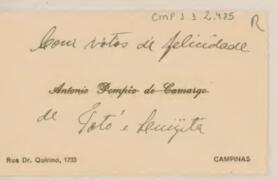 CMP 1.1.2.485
R
Com votos de felicidade
Antonio Pompêo de Camargo
de Totó e Luizita
Rua Dr. Quirino, 1233 CAMPINAS